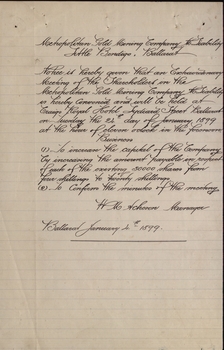 Metropolitan Gold Mining Company No Liability
Little Bendigo. Ballarat
Notice is hereby given that an Extraordinary
Meeting of the Shareholders in the
Metropolitan Gold Mining Company No Liability
is hereby convened and will be held at
Craigs Royal Hotel Street Ballarat
on the day of January 1899
at the hour of eleven o'clock in the forenoon
Business
(1) to increase the capital of the Company
by increasing the amount payable in respect
of each of the existing 30000 shares from
four shillings to twenty shillings
(2) to Confirm the minutes of the meeting
Manager
Ballarat January 1899.